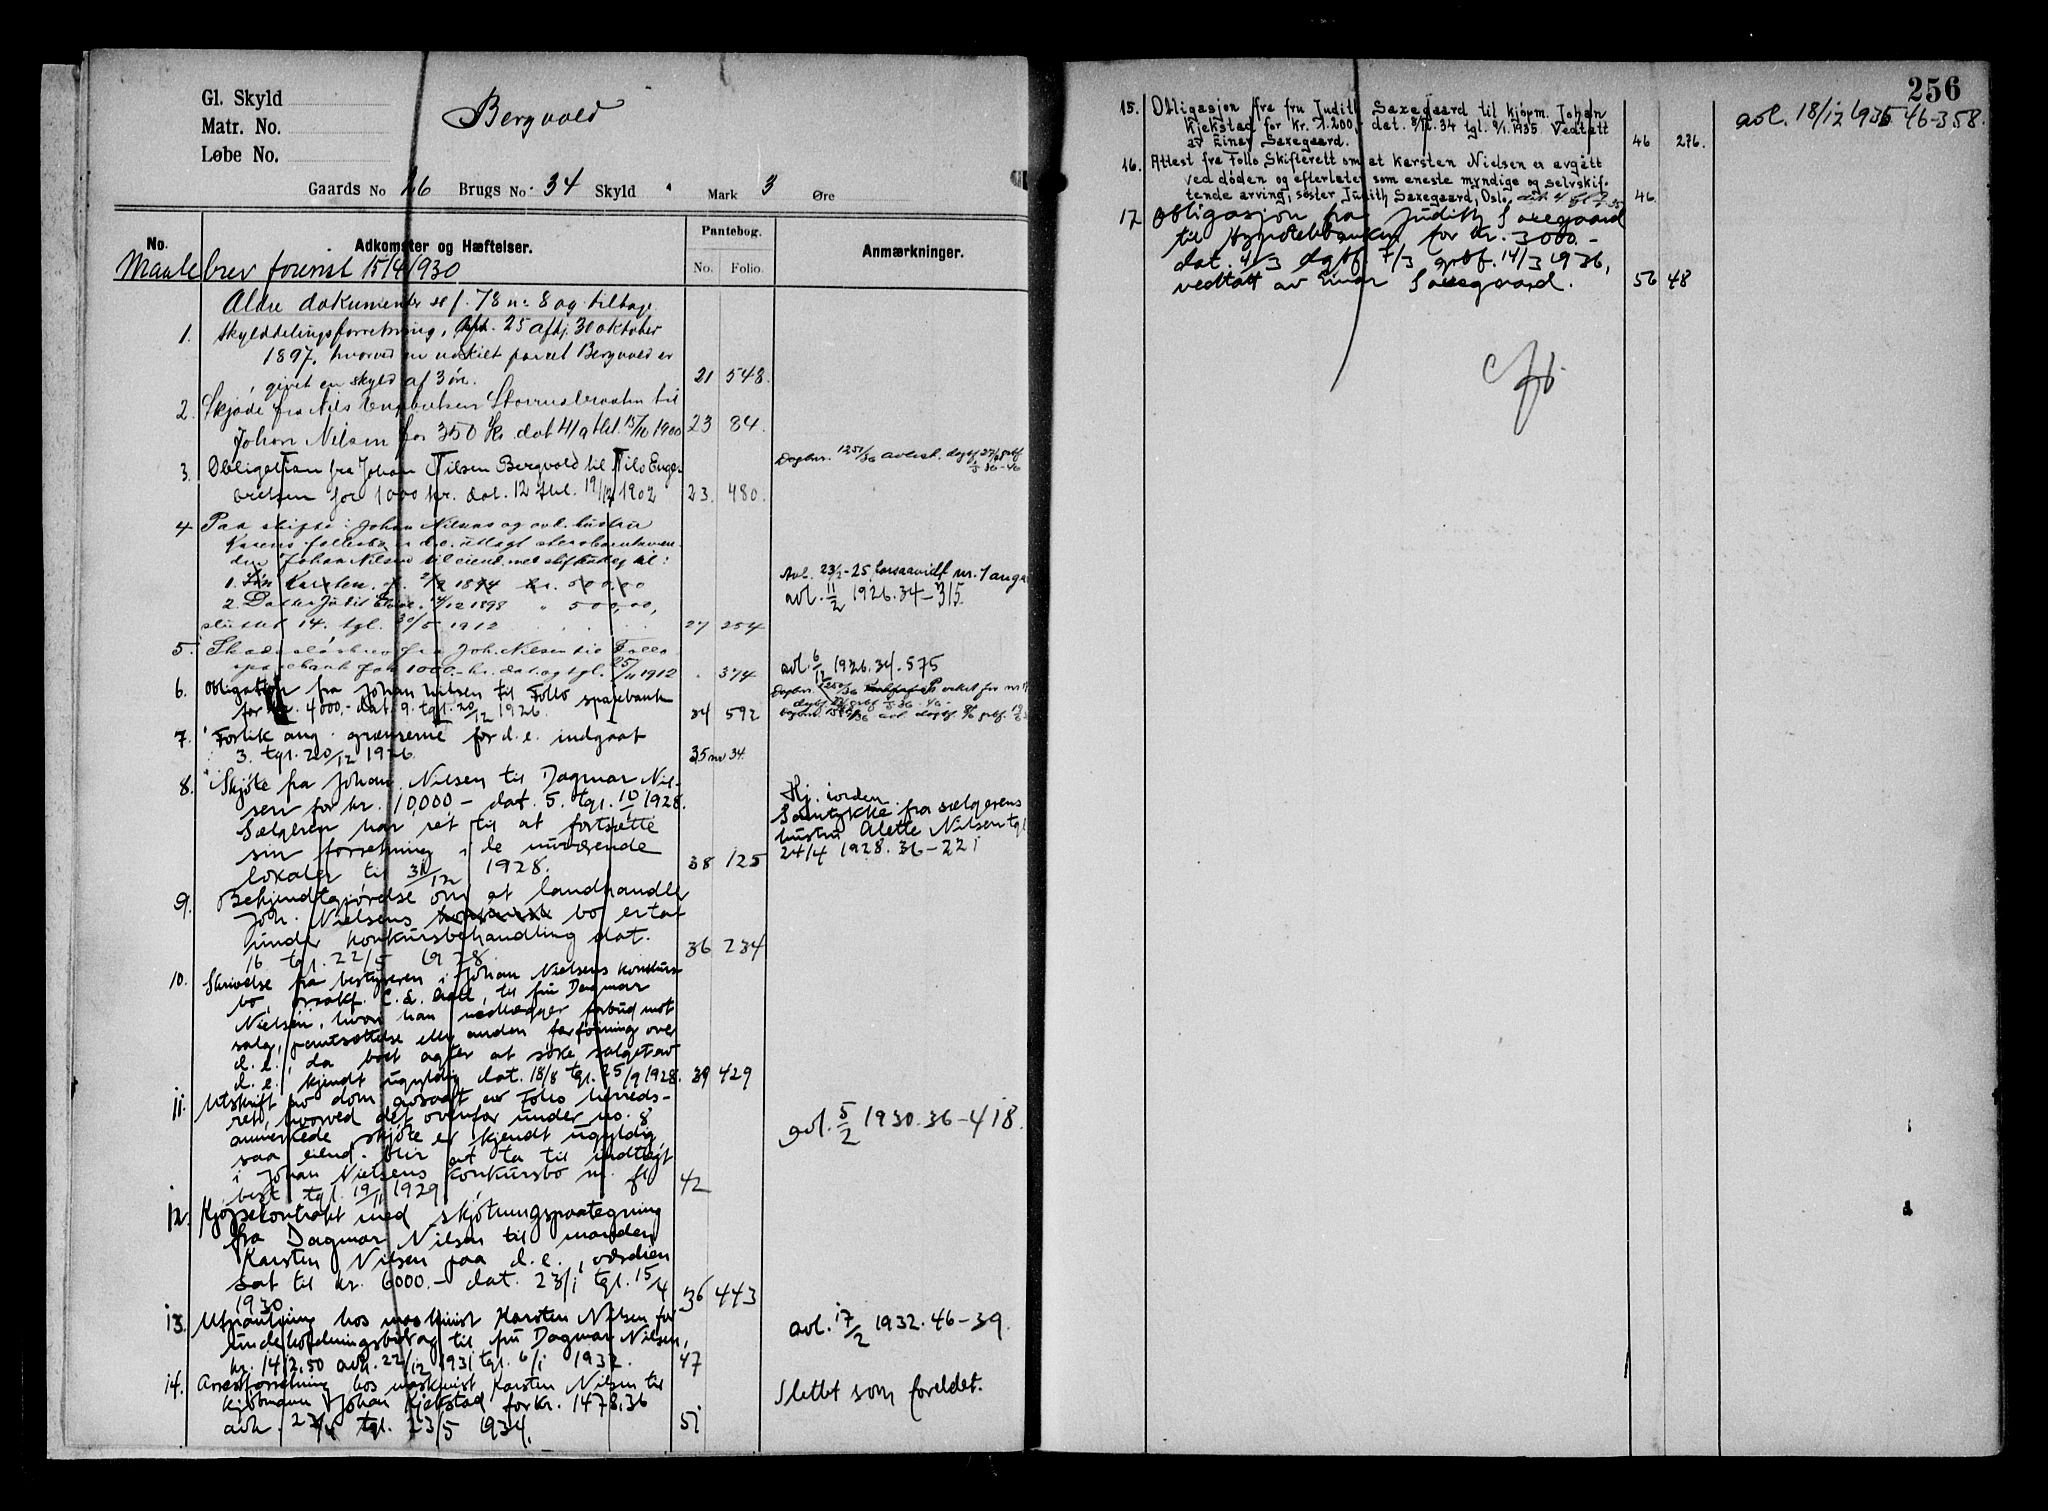 Gl. Skyld
Matr. No.
Løbe No.
Bergvold
Gaards No 26 Brugs No. 34 Skyld Mark 3 Øre
No. Adkomster og Hæftelser. Pantebog. No. Folio. Anmærkninger.
Maalebrev forevist 15/4 1930
Aldre dokumenter se f. 78 nr 8 og tilbage.
1. Skylddelingsforretning, afh. 25 afhj. 30 oktober
1897, hvorved en udskilt parcel Bergvold er
givet en skyld af 3 øre. 21 548.
2. Skjøde fra Nils Engebretsen til
Johan Nilsen for 350 Kr. dat 4/9 thl. 13/10 1900 23 84.
3. Obligation fra Johan Nilsen Bergvold til Nils Enge-
bretsen for 1000 kr. dat. 12 thl. 19/12 1902 23. 480.
Dagbnr. 1251/36 avlest.
4 Paa skifte i Johan Nilsens og avd. hustru
Karens fællesbo er d.e. utlagt
Johan Nilsen til eiend. med heftelse til:
1. Søn Karsten, f. 2/2 1894 kr. 500,00
2. Datter Judit f. 4/12 1898 " 500,00,
sluttet 14. tgl. 30/5 1912 27 254
Avl. 23/2-25, forsaavidt nr. 1 angaar
avl. 11/2 1926. 34-315
5. Skadesløsbrev fra Joh. Nilsen til Follo
sparebank for 1000.- kr. dat. og tgl. 25/11 1912 " 374
avl. 6/12 1926. 34. 575
6. Obligation fra Johan Nilsen til Follo sparebank
for kr. 4000,- dat. 9. tgl. 20/12 1926. 34 592
7. Forlik ang. grænserne for d.e. indgaat
3. tgl. 20/12 1926. 35 nr 34.
8. Skjøte fra Johan Nilsen til Dagmar Nil-
sen for kr. 10,000 - dat. 5. tgl. 10/1 1928.
Sælgeren har ret til at fortsætte
sin forretning i de nuværende
lokaler til 31/12 1928. 38 125
Hj. iorden.
Samtykke fra sælgerens
hustru Alette Nilsen tgl
24/4 1928. 36-221
9. Bekjendtgjørelse om at landhandler
Joh. Nielsens bo er tat
under konkursbehandling dat.
16 tgl. 22/5 1928. 36 234
10. Skrivelse fra bestyreren i Johan Nielsens konkurs-
bo, o.r.sakf. til fru Dagmar
Nielsen, hvori han nedlægger forbud mot
salg, pantsættelse eller anden forføining over
d.e., da boet agter at søke salget av
d.e. kjendt ugyldig dat. 18/8 tgl. 25/9 1928. 39 429
11. Utskrift av dom avsagt av Follo herreds-
ret, hvorved det ovenfor under no. 8
anmerkede skjøte er kjendt ugyldig
saa eiend. blir at ta til indtegt
i Johan Nielsens konkursbo m. fl
best. tgl. 19/11 1929. 42
avl. 5/2 1930. 36-418.
12. Kjøpekontrakt med skjøtningspaategning
fra Dagmar Nilsen til manden
Karsten Nilsen paa d.e., værdien
sat til kr. 6000.- dat. 23/1 tgl. 15/4
1930 36 443
13. Utpantning hos maskinist Karsten Nilsen for
underholdningsbidrag til fru Dagmar Nilsen,
kr. 1412.50 avh. 22/12 1931 tgl. 6/1 1932. 47
avl. 17/2 1932. 46-39.
14. Arrestforretning hos maskinist Karsten Nilsen til
kjøbmann Johan Kjekstad for kr. 1478.36
avh. 23/4 tgl. 23/5 1934. 51
Slettet som foreldet.
256
15. Obligasjon fra fru Judith Saxegaard til kjøpm. Johan
Kjekstad for kr. 1.200,- dat. 8/12. 34 tgl. 9/1. 1935. Vedtatt
av Einar Saxegaard. 46 276.
avl. 18/12 1935 46-358.
16. Attest fra Follo Skifterett om at Karsten Nielsen er avgått
ved døden og efterlater som eneste myndige og selvskif-
tende arving, søster Judith Saxegaard, Oslo. 46.
17 Obligasjon fra Judith Saxegaard
til Hypotekbanken for kr. 3000.-
dat. 4/3 dgbf. 7/3 grbf. 14/3 1936,
vedtatt av Einar Saxegaard. 56 48